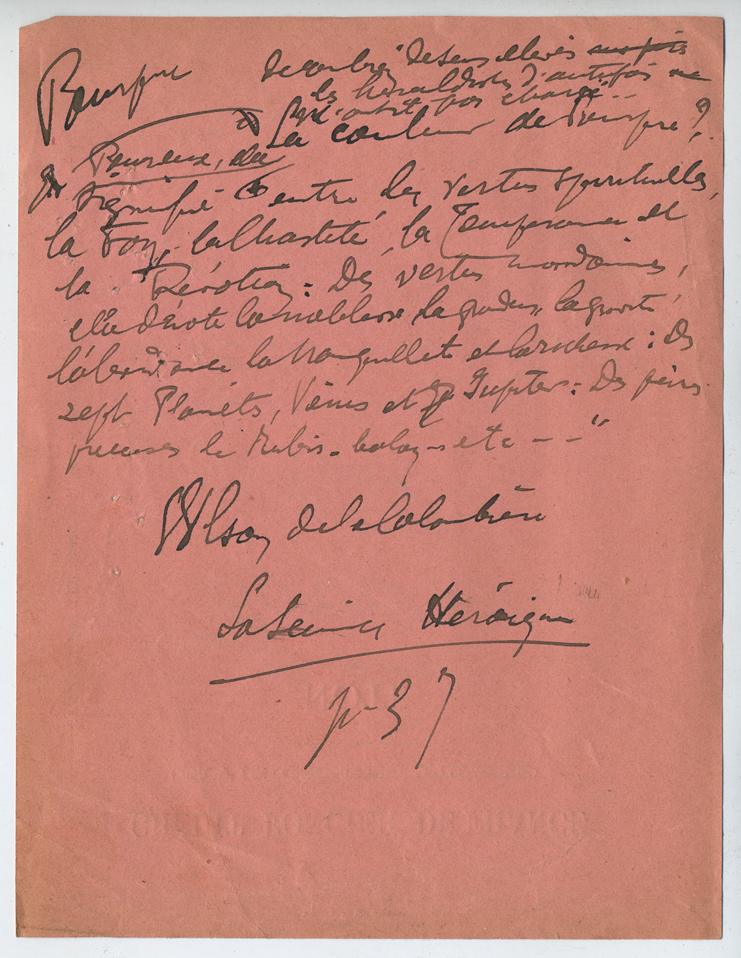 Pourpre
de combien de sens élevés
les héraldistes d'autrefois ne
l'ont pas chargé..
la couleur de Pourpre?
signifie entre les vertus spirituelles,
la Foy, la Chasteté, la Temperance et
la Dévotion : Des vertus mondaines,
elle dénote la noblesse, la grandeur, la gravité,
l'abondance la tranquillité et la richesse : Des
sept Planets, Vénus et Jupiter : Des pierres
precieuses le Rubis-balay - etc - - "
Wlson de la Colombière
La Science Héroique
p. 37
CRÉDIT FONCIER DE FRANCE